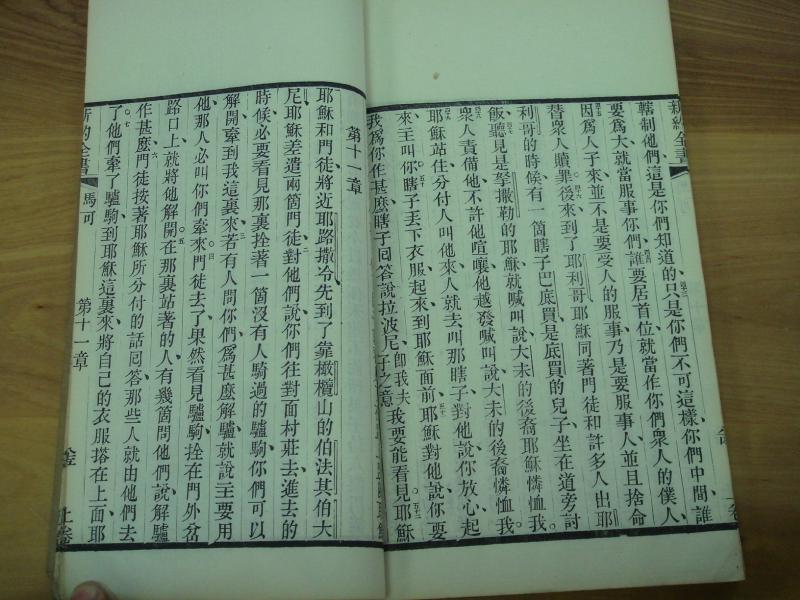 新約全書
轄制他們、這是你們知道的、只是你們不可這樣、你們中間誰
要爲大、就當服事你們、誰要居首位、就當作你們衆人的僕人、
因爲人子來、並不是要受人的服事、乃是要服事人、並且捨命
替衆人贖罪。後來到了耶利哥、耶穌同著門徒和許多人出耶
利哥的時候、有一箇瞎子巴底買、是底買的兒子、坐在道旁討
飯、聽見是拏撒勒的耶穌、就喊叫說、大未的後裔耶穌、憐恤我。
衆人責備他、不許他喧嚷、他越發喊叫說、大未的後裔、憐恤我。
耶穌站住、分付人叫他來、人就去叫那瞎子、對他說、你放心、起
來、主叫你。瞎子丟下衣服、起來、到耶穌面前、耶穌對他說、你要
我爲你作甚麽、瞎子囘答說、拉波尼、卽我夫子之意我要能看見、耶穌
第十一章
耶穌和門徒將近耶路撒冷、先到了靠橄欖山的伯法其、伯大
尼、耶穌差遣兩箇門徒、對他們說、你們往對面村莊去、進去的
時候、必要看見那裏拴著一箇沒有人騎過的驢駒、你們可以
解開、牽到我這裏來、若有人問你們爲甚麽解驢、就說主要用
他、那人必叫你們牽來、門徒去了、果然看見驢駒、拴在門外岔
路口上、就將他解開、在那裏站著的人、有幾箇問他們說、解驢
作甚麽、門徒按著耶穌所分付的話囘答、那些人就由他們去
了。他們牽了驢駒到耶穌這裏來、將自己的衣服搭在上面、耶
新約全書
馬可
第十一章
上卷